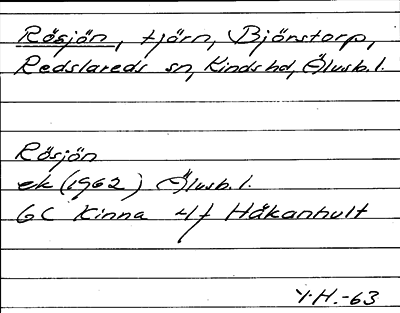 Rösjön, tjärn, Björstorp,
Redslareds sn, Kinds hd, Älvsb. l.
Rösjön
ek (1962) Älvsb. l.
6C Kinna 4f Håkanhult
Y.H.-63